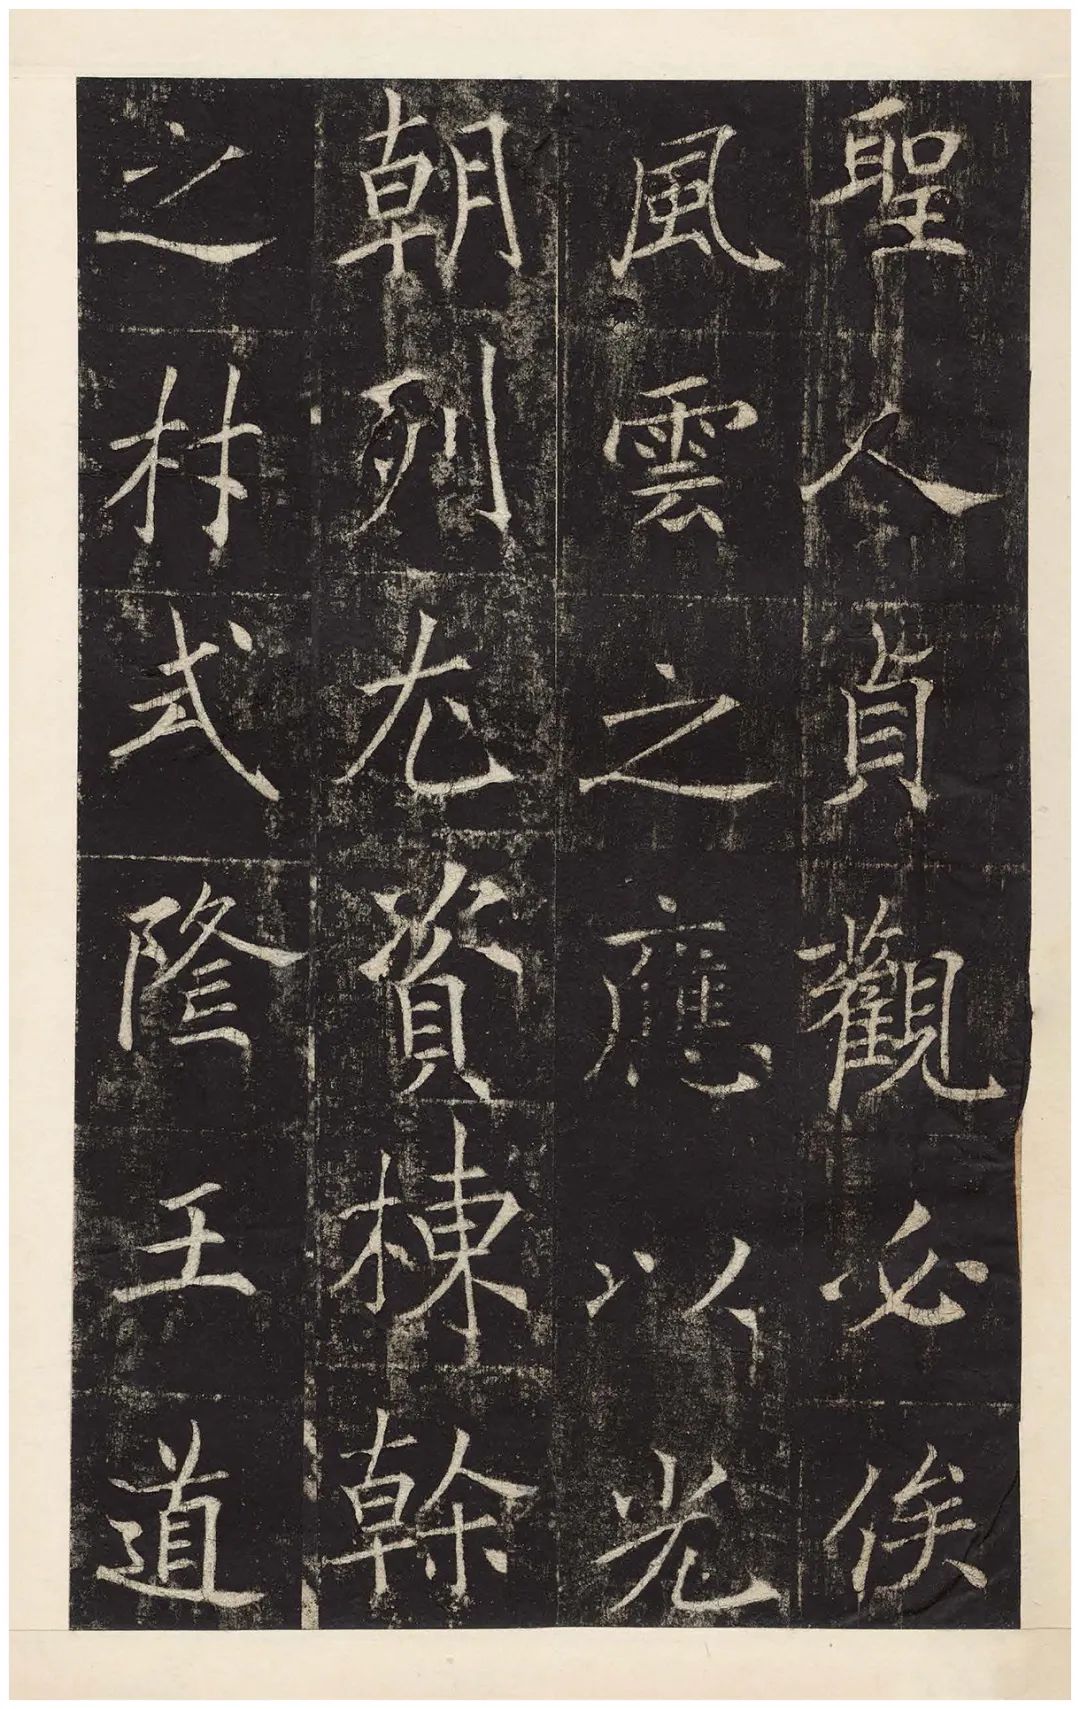 聖人貞觀必俟
風雲之應以光
朝列尤資棟幹
之材式隆王道